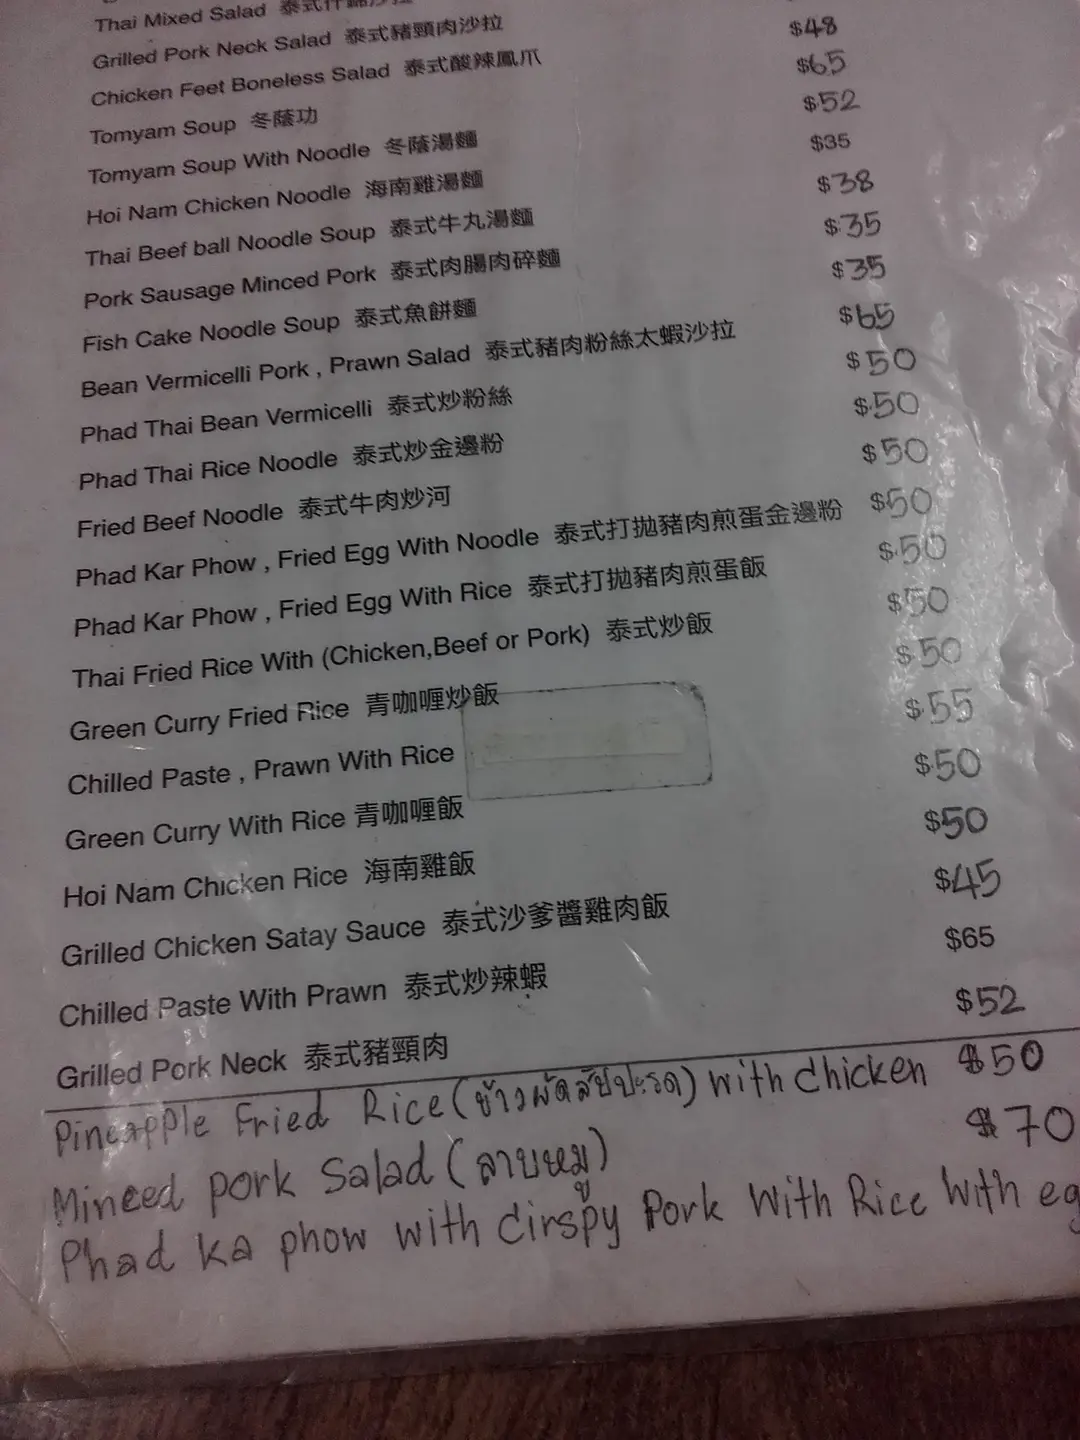 Thai Mixed Salad 泰式什錦沙拉
Grilled Pork Neck Salad 泰式豬頸肉沙拉
Chicken Feet Boneless Salad 泰式酸辣鳳爪 $48
Tomyam Soup 冬蔭功 $65
Tomyam Soup With Noodle 冬蔭湯麵 $52
Hoi Nam Chicken Noodle 海南雞湯麵 $35
Thai Beef ball Noodle Soup 泰式牛丸湯麵 $38
Pork Sausage Minced Pork 泰式肉腸肉碎麵 $35
Fish Cake Noodle Soup 泰式魚餅麵 $35
Bean Vermicelli Pork , Prawn Salad 泰式豬肉粉絲太蝦沙拉 $65
Phad Thai Bean Vermicelli 泰式炒粉絲 $50
Phad Thai Rice Noodle 泰式炒金邊粉 $50
Fried Beef Noodle 泰式牛肉炒河 $50
Phad Kar Phow , Fried Egg With Noodle 泰式打拋豬肉煎蛋金邊粉 $50
Phad Kar Phow , Fried Egg With Rice 泰式打拋豬肉煎蛋飯 $50
Thai Fried Rice With (Chicken,Beef or Pork) 泰式炒飯 $50
Green Curry Fried Rice 青咖喱炒飯 $50
Chilled Paste , Prawn With Rice $55
Green Curry With Rice 青咖喱飯 $50
Hoi Nam Chicken Rice 海南雞飯 $50
Grilled Chicken Satay Sauce 泰式沙爹醬雞肉飯 $45
Chilled Paste With Prawn 泰式炒辣蝦 $65
Grilled Pork Neck 泰式豬頸肉 $52
Pineapple Fried Rice (ข้าวผัดสัปปะรด) with chicken $50
Minced pork Salad (ลาบหมู) $70
Phad ka phow with cirspy Pork With Rice With eg